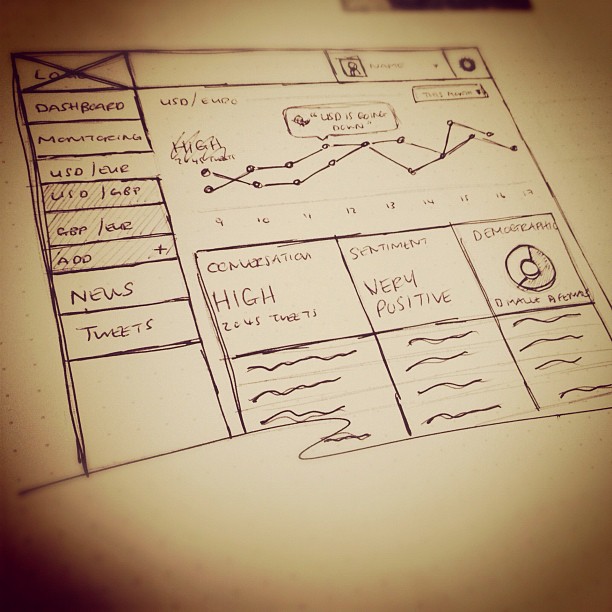 LOGO
NAME
DASHBOARD
MONITORING
USD/EUR
USD/GBP
GBP/EUR
ADD +
NEWS
TWEETS
USD/EURO
THIS MONTH
"USD IS GOING
DOWN"
HIGH
2045 TWEETS
9 10 11 12 13 14 15 16 17
CONVERSATION
HIGH
2045 TWEETS
SENTIMENT
VERY
POSITIVE
DEMOGRAPHIC
MALE FEMALE